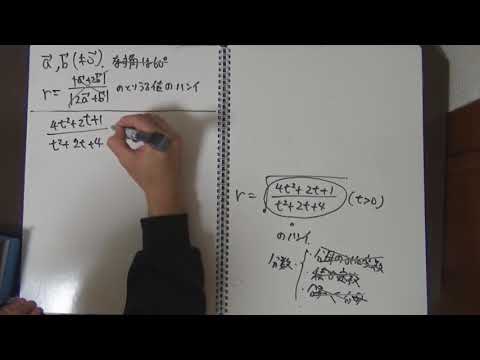 a⃗, b⃗ (≠0⃗). なす角は60°
r = |a⃗+2b⃗| / |2a⃗+b⃗| のとりうる値のハンイ
(4t²+2t+1) / (t²+2t+4)
r = √((4t²+2t+1) / (t²+2t+4)) (t>0)
のハンイ.
分数